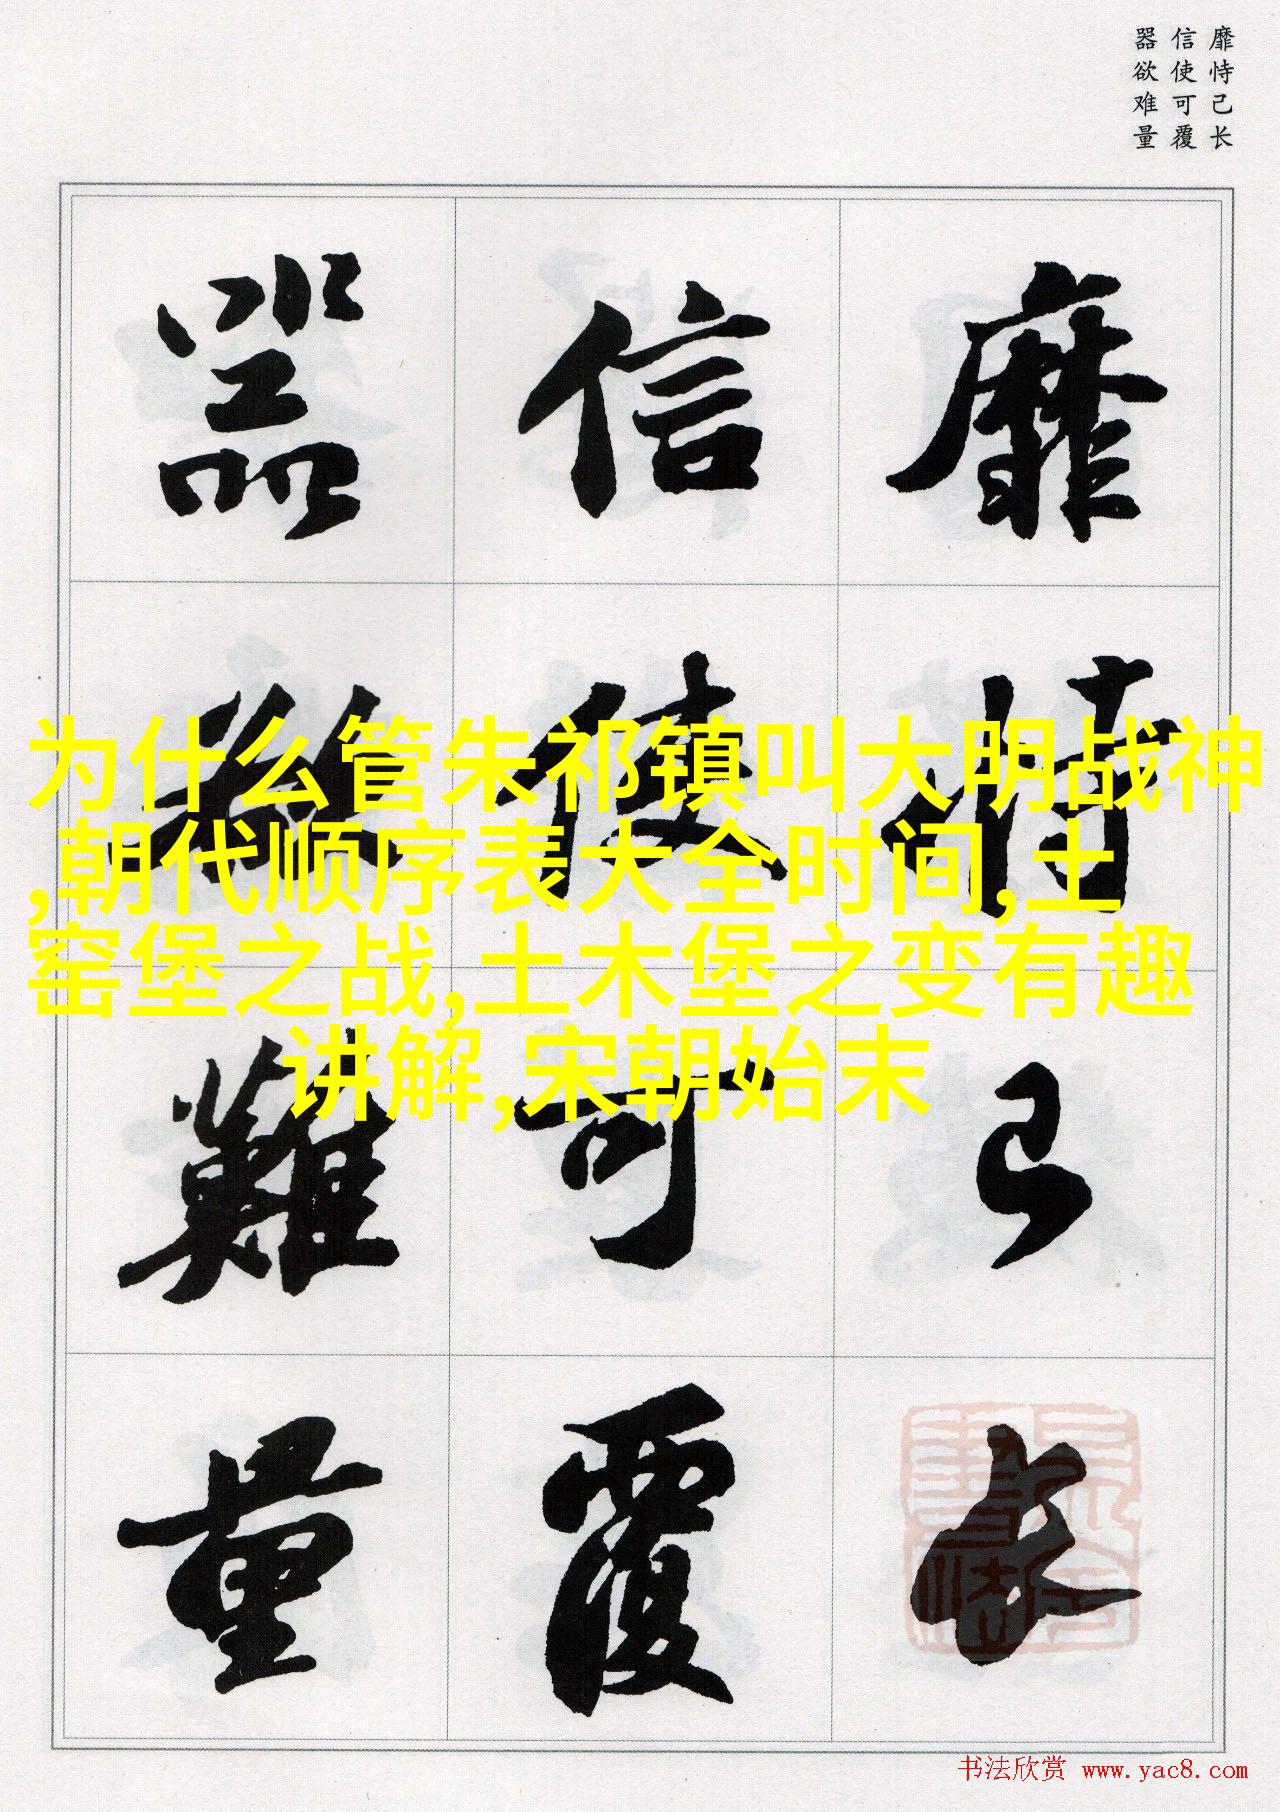 靡恃己长
信使可覆
器欲难量
靡恃己长
信使可覆
器欲難量
为什么管朱祁镇叫大明战神
,朝代顺序表大全时间,土
窑堡之战,土木堡之变有趣
讲解,宋朝始末
书法欣赏 www.yac8.com